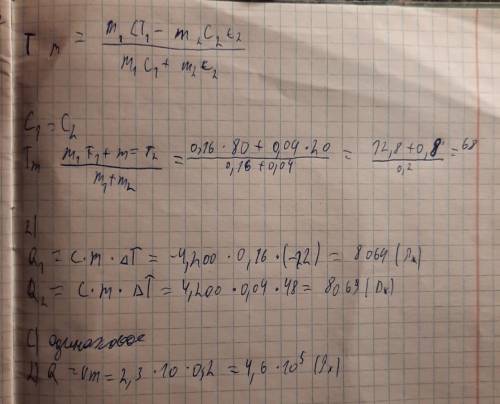 T m = (m₁CT₁ - m₂C₂t₂) / (m₁C₁ + m₂t₂)
C₁ = C₂
Tm (m₁T₁ + m = T₂) / (m₁+m₂) = (0,16 · 80 + 0,04 · 20) / (0,16 + 0,04) = (12,8 + 0,8) / 0,2 = 68
2)
Q₁ = C · m · ΔT = -4,200 · 0,16 · (-12) = 8064 (Дж)
Q₂ = C · m · ΔT = 4,200 · 0,04 · 48 = 8064 (Дж)
C) одинаковое
Q = vm = 2,3 · 10 · 0,2 = 4,6 · 10⁵ (Дж)